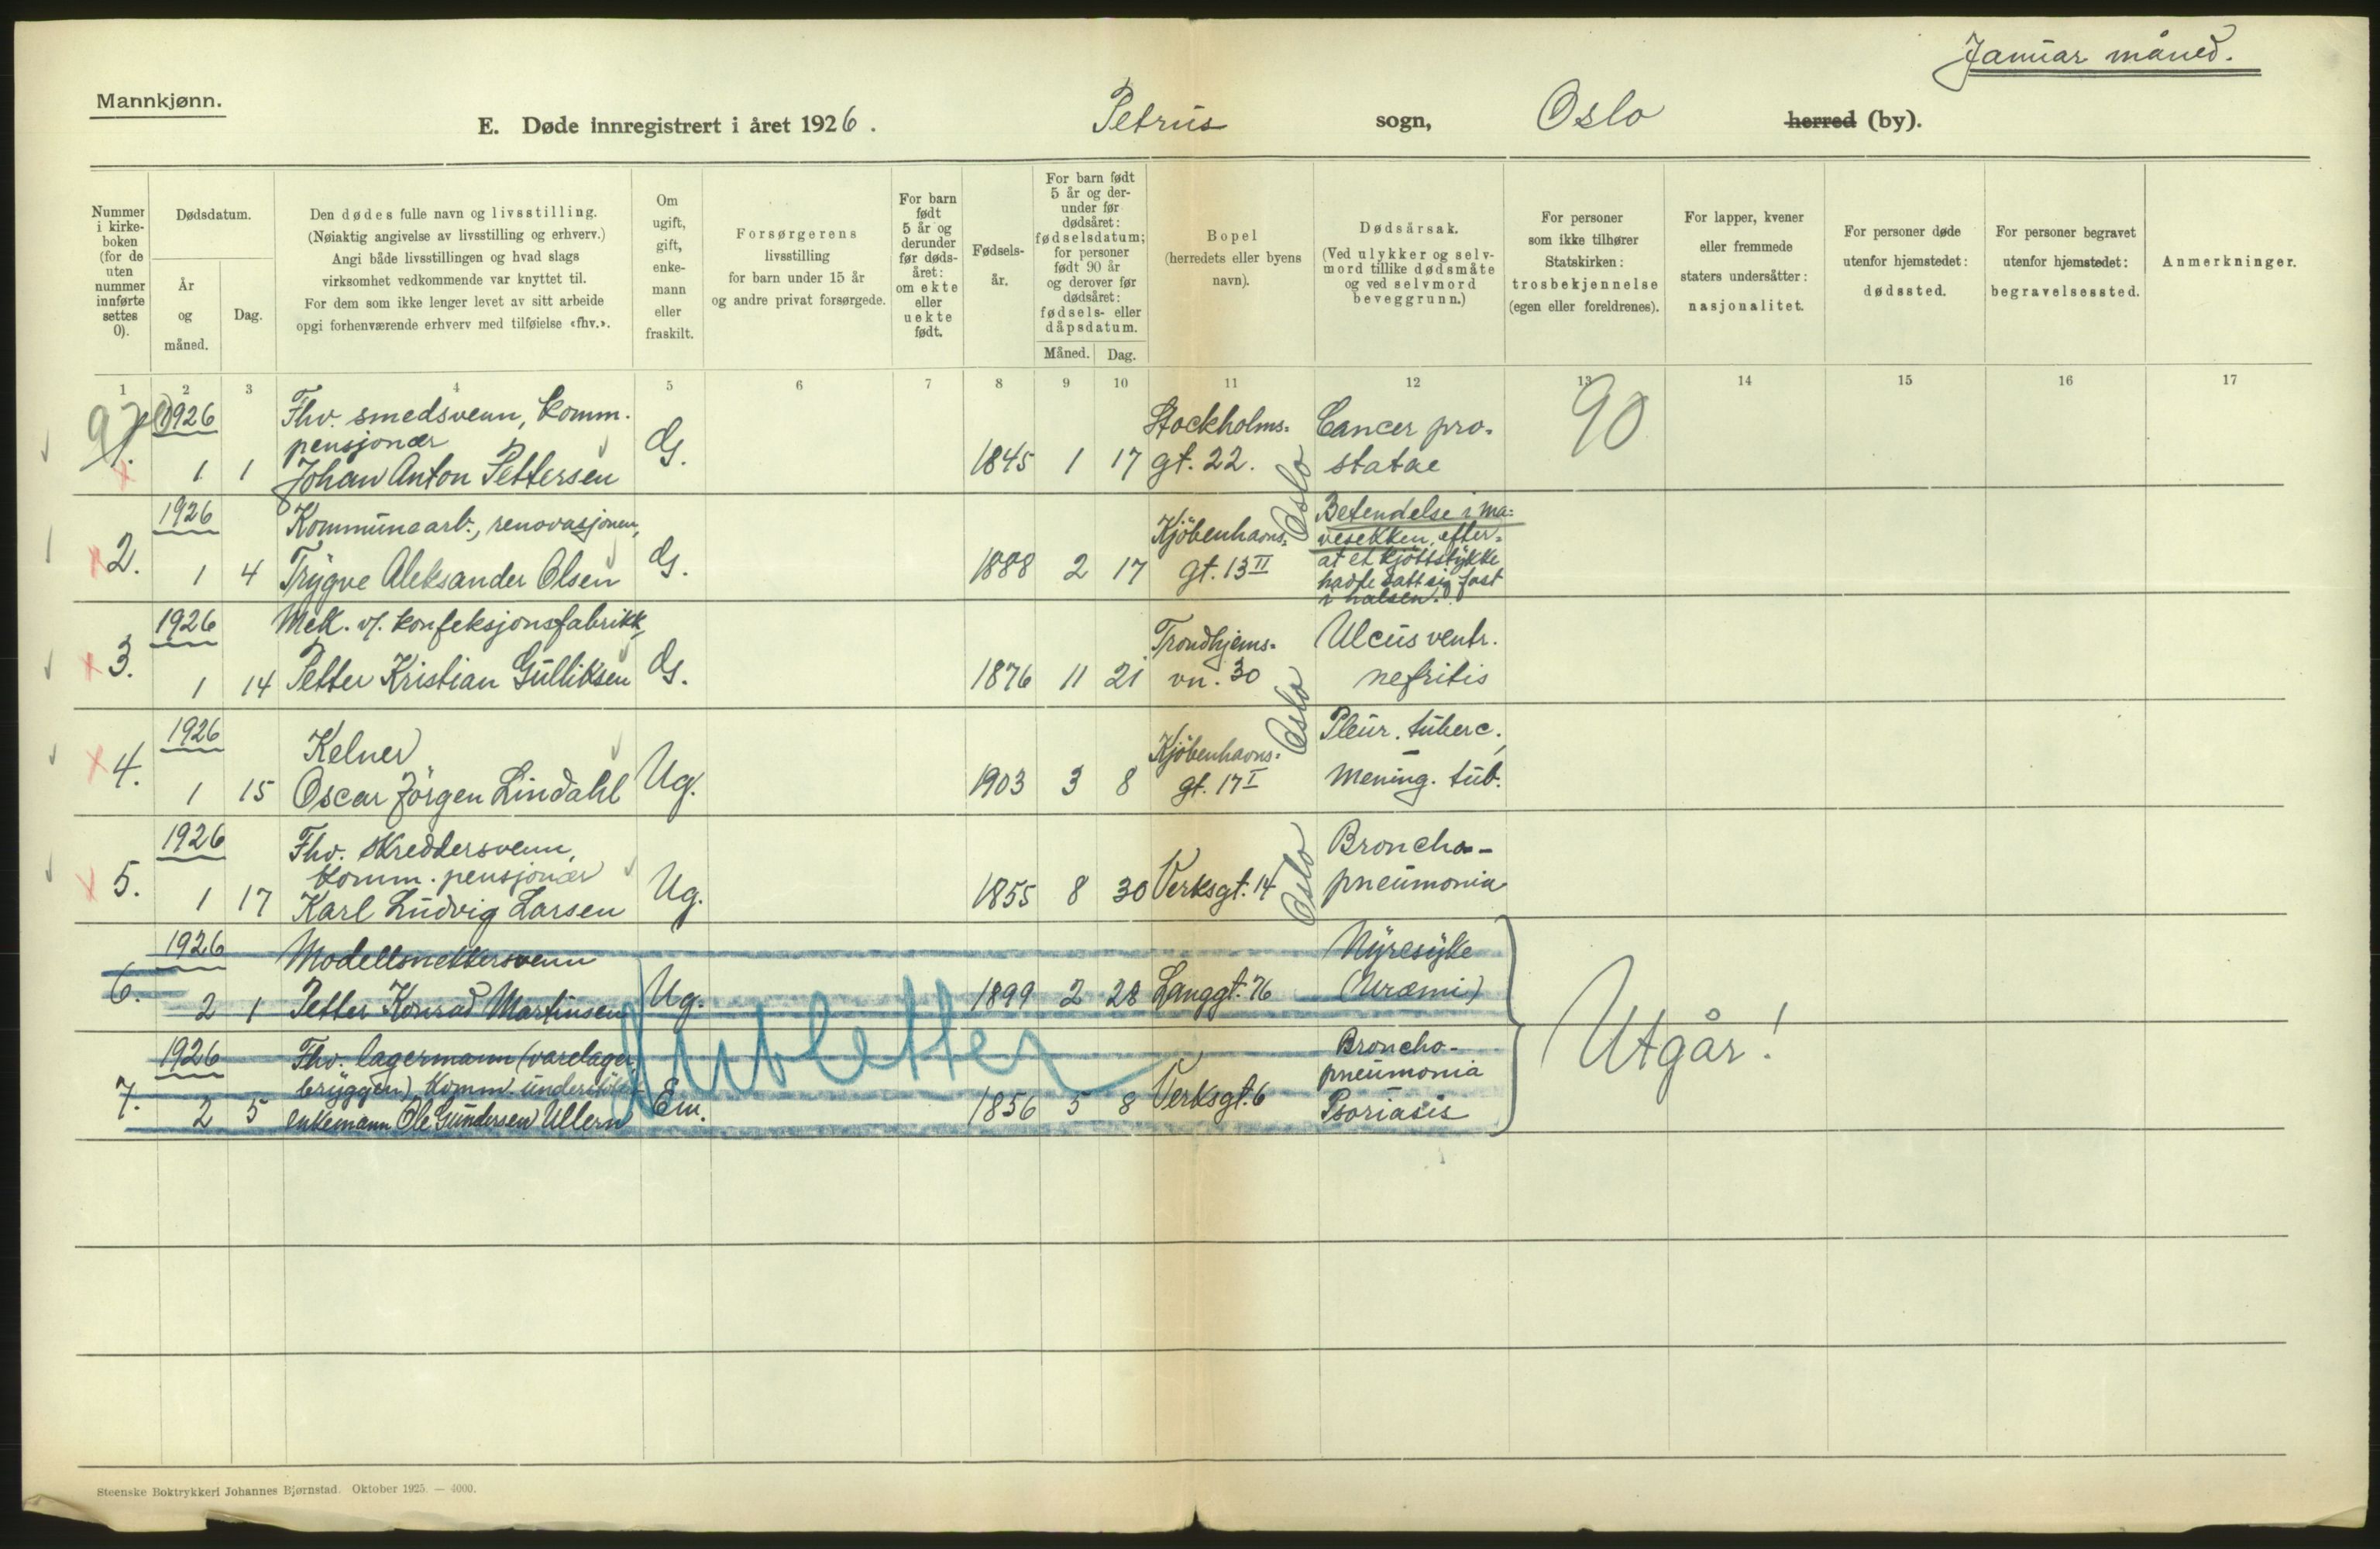 Januar måned.
Mannkjønn.
E. Døde innregistrert i året 1926. Petrus sogn, Oslo herred (by).
Nummer i kirke-boken (for de uten nummer innførte settes 0).
Dødsdatum.
År og måned.
Dag.
Den dødes fulle navn og livsstilling.
(Nøiaktig angivelse av livsstilling og erhverv.)
Angi både livsstillingen og hvad slags
virksomhet vedkommende var knyttet til.
For dem som ikke lenger levet av sitt arbeide
opgi forhenværende erhverv med tilføielse «fhv.».
Om
ugift,
gift,
enke-
mann
eller
fraskilt.
Forsørgerens
livsstilling
for barn under 15 år
og andre privat forsørgede.
For barn
født
5 år og
derunder
før døds-
året:
om ekte
eller
uekte
født.
Fødsels-
år.
For barn født
5 år og der-
under før
dødsåret:
fødselsdatum;
for personer
født 90 år
og derover før
dødsåret:
fødsels- eller
dåpsdatum.
Måned. Dag.
Bopel
(herredets eller byens
navn).
Dødsårsak.
(Ved ulykker og selv-
mord tillike dødsmåte
og ved selvmord
beveggrunn.)
For personer
som ikke tilhører
Statskirken:
trosbekjennelse
(egen eller foreldrenes).
For lapper, kvener
eller fremmede
staters undersåtter:
nasjonalitet.
For personer døde
utenfor hjemstedet:
dødssted.
For personer begravet
utenfor hjemstedet:
begravelsessted.
Anmerkninger.
1 2 3 4 5 6 7 8 9 10 11 12 13 14 15 16 17
1926 Fhv. smedsvenn, komm. Stockholms= Cancer pro- 90
pensjonær
1. 1 1 Johan Anton Pettersen G. 1845 1 17 gt. 22. Oslo statae
1926 Kommunearb., renovasjonen, Kjöbenhavns= Betendelse i ma=
vesekken, efter=
2. 1 4 Trygve Aleksander Olsen G. 1888 2 17 gt. 13 II at et kjøttstykke
hadde satt sig fast
i halsen.
1926 Mek. v/. konfeksjonsfabrikk, Trondhjems- Ulcus ventr.
3. 1 14 Petter Kristian Gulliksen G. 1876 11 21 vn. 30 Oslo nefritis
1926 Kelner Kjöbenhavns= Pleur. tuberc.,
4. 1 15 Oscar Jörgen Lindahl Ug. 1903 3 8 gt. 17 I Mening. tub.
1926 Fhv. skreddersvenn, Broncho-
komm. pensjonær
5. 1 17 Karl Ludvig Larsen Ug. 1855 8 30 Verksgt. 14 Oslo pneumonia
1926 Modellsnekkersvenn Nyresyke
6. 2 1 Petter Konrad Martinsen Ug. 1899 2 28 Langgt. 76 (Uræmi)
Dubletter
Utgår!
1926 Fhv. lagermann (varelager Broncho-
bryggen) Komm. pneumonia
7. 2 5 enkemann Ole Gundersen Ullern Em. 1856 5 8 Verksgt. 6 Psoriasis
Steenske Boktrykkeri Johannes Bjørnstad. Oktober 1925. — 4000.